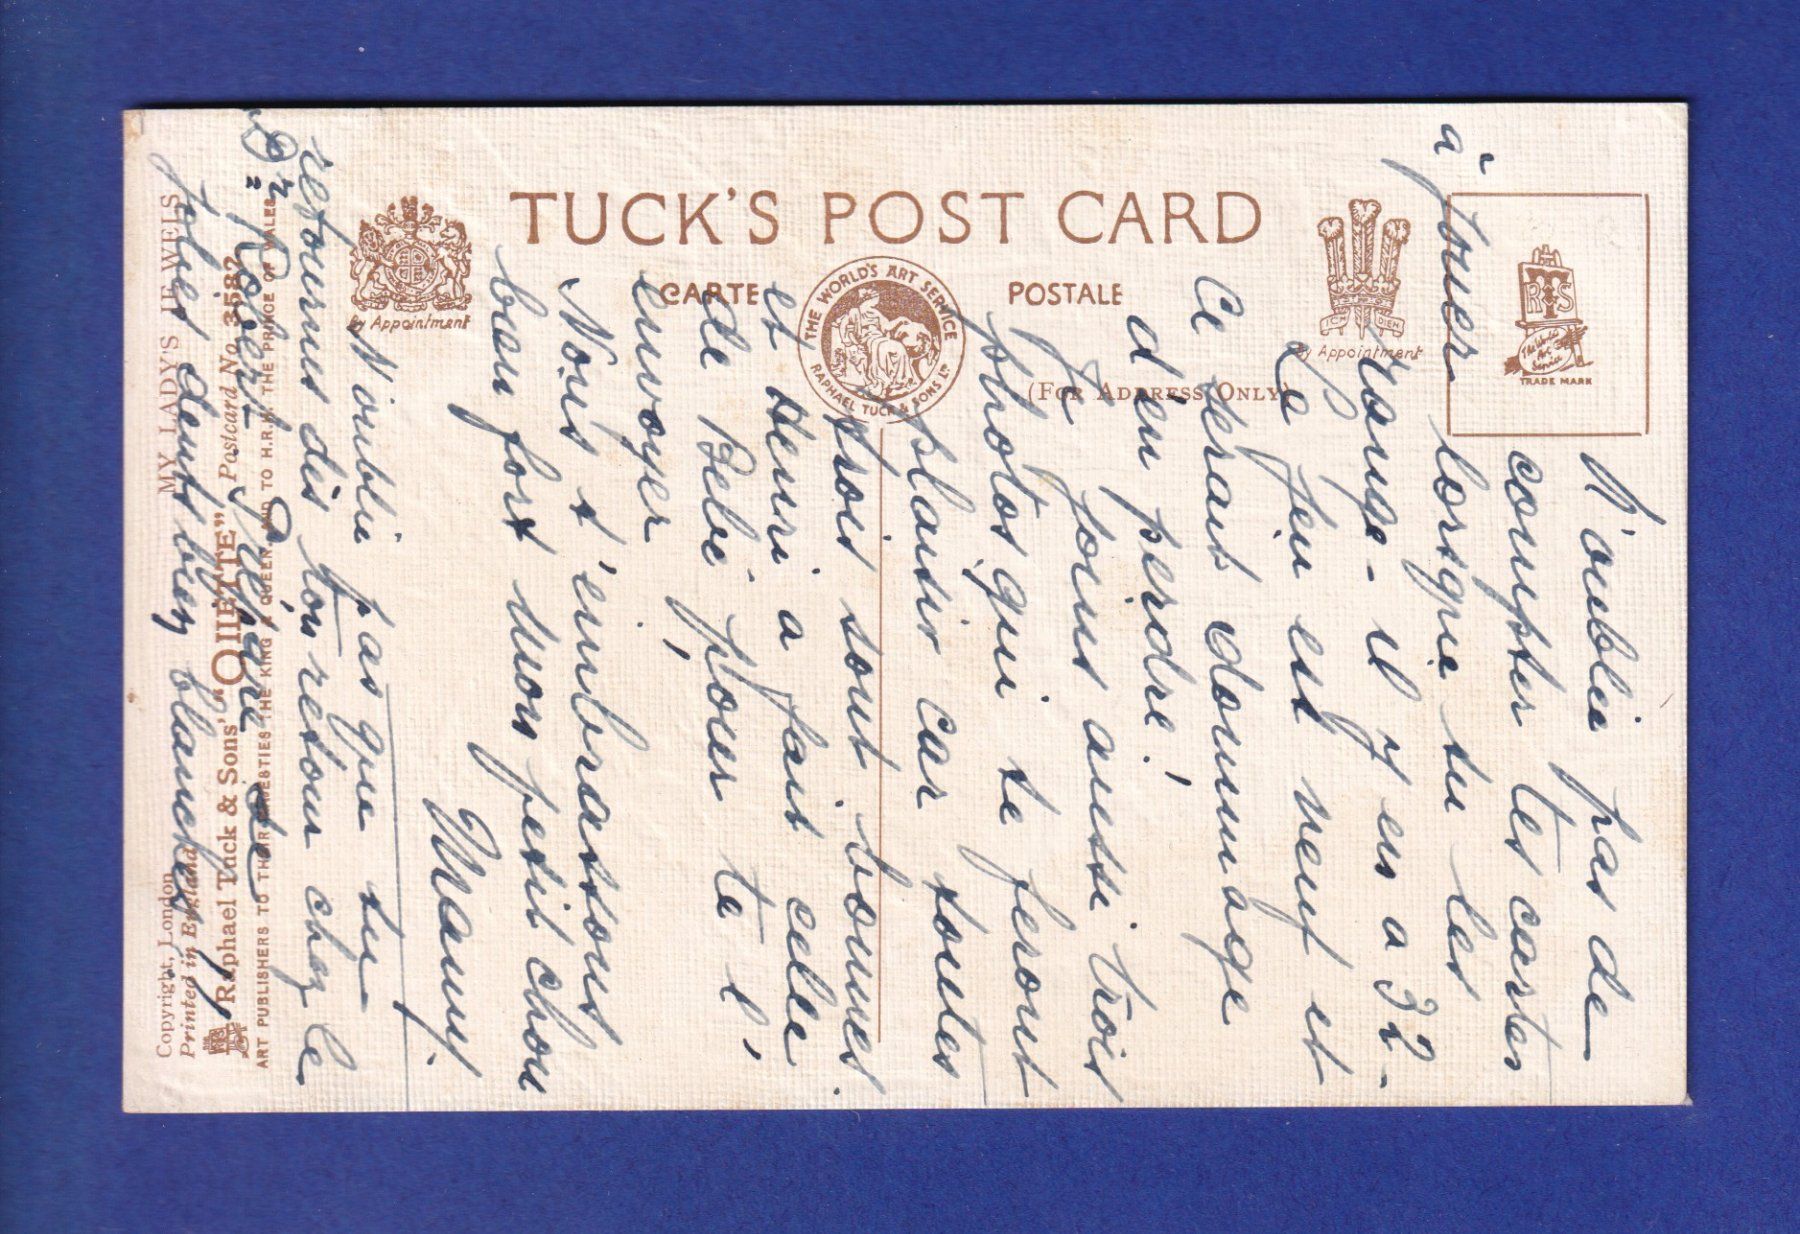 TUCK'S POST CARD
CARTE POSTALE
(FOR ADDRESS ONLY)
By Appointment
By Appointment
THE WORLD'S ART SERVICE
RAPHAEL TUCK & SONS LTD
ICH DIEN
RTS
The World's Art Service
TRADE MARK
MY LADY'S JEWELS
Copyright, London
Printed in England
Raphael Tuck & Sons' "OILETTE" Postcard No. 3582
ART PUBLISHERS TO THEIR MAJESTIES THE KING & QUEEN AND TO H.R.H. THE PRINCE OF WALES
N'oublie pas de
compter tes cartes
à jouer lorsque tu les
range - il y en a 32 -
Le jeu est neuf et
Ce serait dommage
d'en perdre!
Je joins aussi trois
photos qui te feront
plaisir car toutes
trois sont bonnes.
et Henri a fait celle
de Bébé pour te l'
envoyer
Nous t'embrassons
bien fort mon petit chou
Mamy.
N'oublie pas que tu
retournes dès ton retour chez le
Dr Robert
jolies dents bien blanches